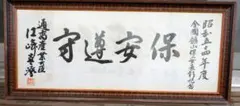 昭和五十四年度
全国鉱山保安表彰記念
保安遵守
通商産業大臣
江崎真澄